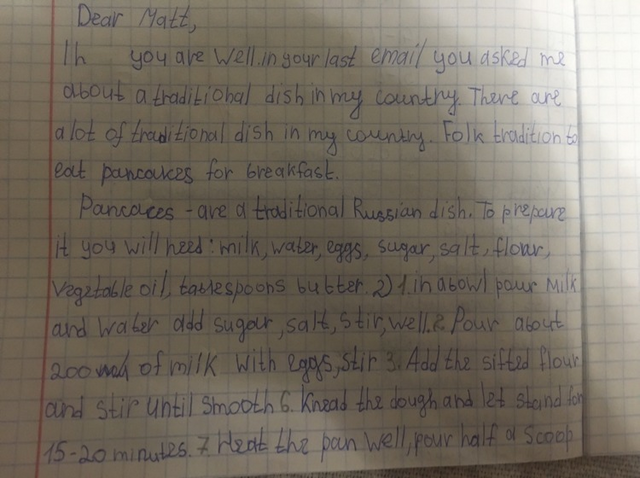 Dear Matt,
I h you are well. in your last email you asked me
about a traditional dish in my country. There are
a lot of traditional dish in my country. Folk tradition to
eat pancakes for breakfast.
Pancaces - are a traditional Russian dish. To prepare
it you will need: milk, water, eggs, sugar, salt, flour,
vegetable oil, tablespoons butter. 2) 1. in a bowl pour milk
and water add sugar, salt, stir, well. 2. Pour about
200 of milk with eggs, stir 3. Add the sifted flour
and stir until smooth 6. Knead the dough and let stand for
15-20 minutes. 7 Heat the pan well, pour half a scoop